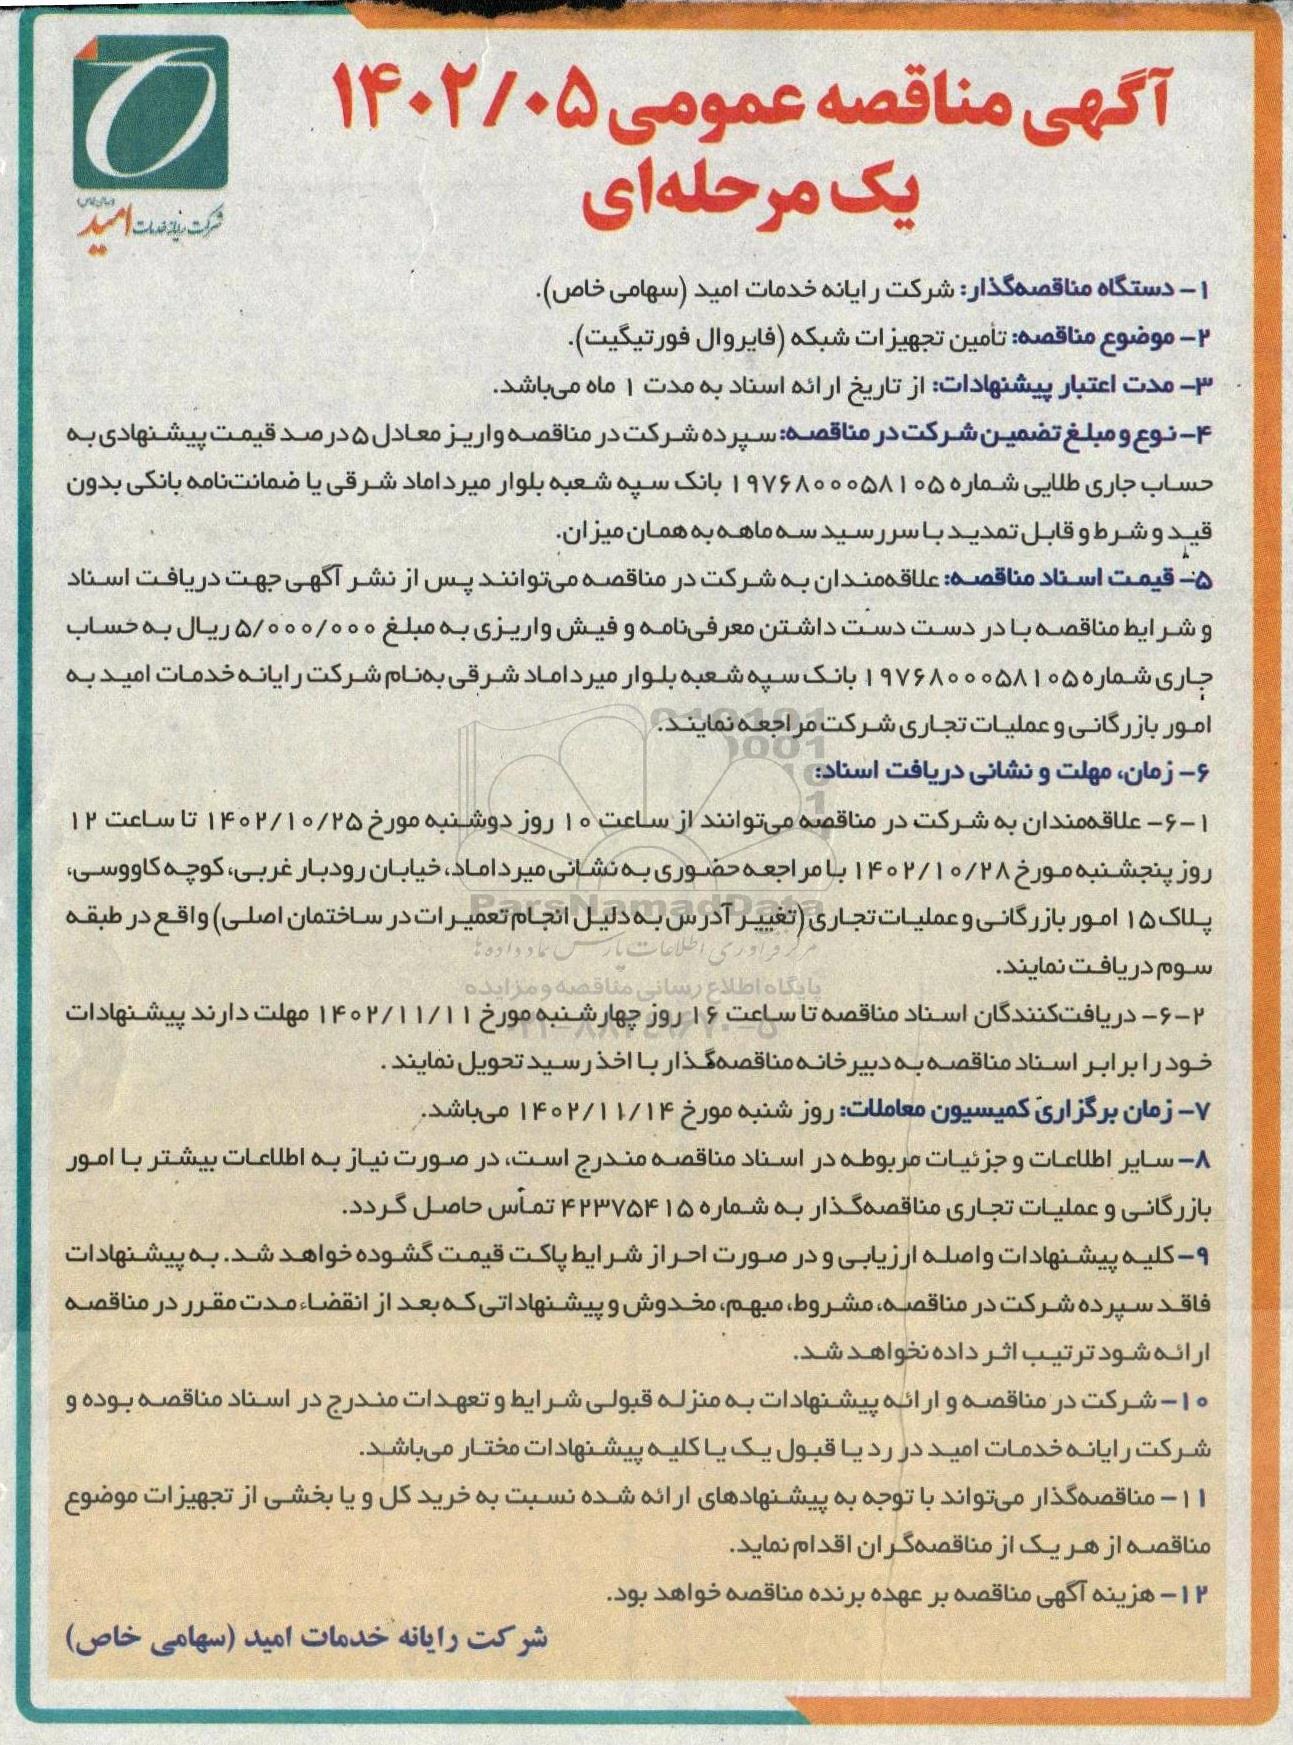 آگهی مناقصه عمومی ۱۴۰۲/۰۵
یک مرحله‌ای
شرکت رایانه خدمات امید
(سهامی خاص)
۱- دستگاه مناقصه‌گذار: شرکت رایانه خدمات امید (سهامی خاص).
۲- موضوع مناقصه: تأمین تجهیزات شبکه (فایروال فورتیگیت).
۳- مدت اعتبار پیشنهادات: از تاریخ ارائه اسناد به مدت ۱ ماه می‌باشد.
۴- نوع و مبلغ تضمین شرکت در مناقصه: سپرده شرکت در مناقصه واریز معادل ۵ درصد قیمت پیشنهادی به
حساب جاری طلایی شماره ۱۹۷۶۸۰۰۰۵۸۱۰۵ بانک سپه شعبه بلوار میرداماد شرقی یا ضمانت‌نامه بانکی بدون
قید و شرط و قابل تمدید با سررسید سه ماهه به همان میزان.
۵- قیمت اسناد مناقصه: علاقه‌مندان به شرکت در مناقصه می‌توانند پس از نشر آگهی جهت دریافت اسناد
و شرایط مناقصه با در دست دست داشتن معرفی‌نامه و فیش واریزی به مبلغ ۵/۰۰۰/۰۰۰ ریال به حساب
جاری شماره ۱۹۷۶۸۰۰۰۵۸۱۰۵ بانک سپه شعبه بلوار میرداماد شرقی به‌نام شرکت رایانه خدمات امید به
امور بازرگانی و عملیات تجاری شرکت مراجعه نمایند.
۶- زمان، مهلت و نشانی دریافت اسناد:
۶-۱- علاقه‌مندان به شرکت در مناقصه می‌توانند از ساعت ۱۰ روز دوشنبه مورخ ۱۴۰۲/۱۰/۲۵ تا ساعت ۱۲
روز پنجشنبه مورخ ۱۴۰۲/۱۰/۲۸ با مراجعه حضوری به نشانی میرداماد، خیابان رودبار غربی، کوچه کاووسی،
پلاک ۱۵ امور بازرگانی و عملیات تجاری (تغییر آدرس به دلیل انجام تعمیرات در ساختمان اصلی) واقع در طبقه
سوم دریافت نمایند.
۶-۲- دریافت‌کنندگان اسناد مناقصه تا ساعت ۱۶ روز چهارشنبه مورخ ۱۴۰۲/۱۱/۱۱ مهلت دارند پیشنهادات
خود را برابر اسناد مناقصه به دبیرخانه مناقصه‌گذار با اخذ رسید تحویل نمایند .
۷- زمان برگزاری کمیسیون معاملات: روز شنبه مورخ ۱۴۰۲/۱۱/۱۴ می‌باشد.
۸- سایر اطلاعات و جزئیات مربوطه در اسناد مناقصه مندرج است، در صورت نیاز به اطلاعات بیشتر با امور
بازرگانی و عملیات تجاری مناقصه‌گذار به شماره ۴۲۳۷۵۴۱۵ تماس حاصل گردد.
۹- کلیه پیشنهادات واصله ارزیابی و در صورت احراز شرایط پاکت قیمت گشوده خواهد شد. به پیشنهادات
فاقد سپرده شرکت در مناقصه، مشروط، مبهم، مخدوش و پیشنهاداتی که بعد از انقضاء مدت مقرر در مناقصه
ارائه شود ترتیب اثر داده نخواهد شد.
۱۰- شرکت در مناقصه و ارائه پیشنهادات به منزله قبولی شرایط و تعهدات مندرج در اسناد مناقصه بوده و
شرکت رایانه خدمات امید در رد یا قبول یک یا کلیه پیشنهادات مختار می‌باشد.
۱۱- مناقصه‌گذار می‌تواند با توجه به پیشنهادهای ارائه شده نسبت به خرید کل و یا بخشی از تجهیزات موضوع
مناقصه از هر یک از مناقصه‌گران اقدام نماید.
۱۲- هزینه آگهی مناقصه بر عهده برنده مناقصه خواهد بود.
شرکت رایانه خدمات امید (سهامی خاص)
ParsNamadData
مرکز فرآوری اطلاعات پارس نماد داده ها
پایگاه اطلاع رسانی مناقصه و مزایده